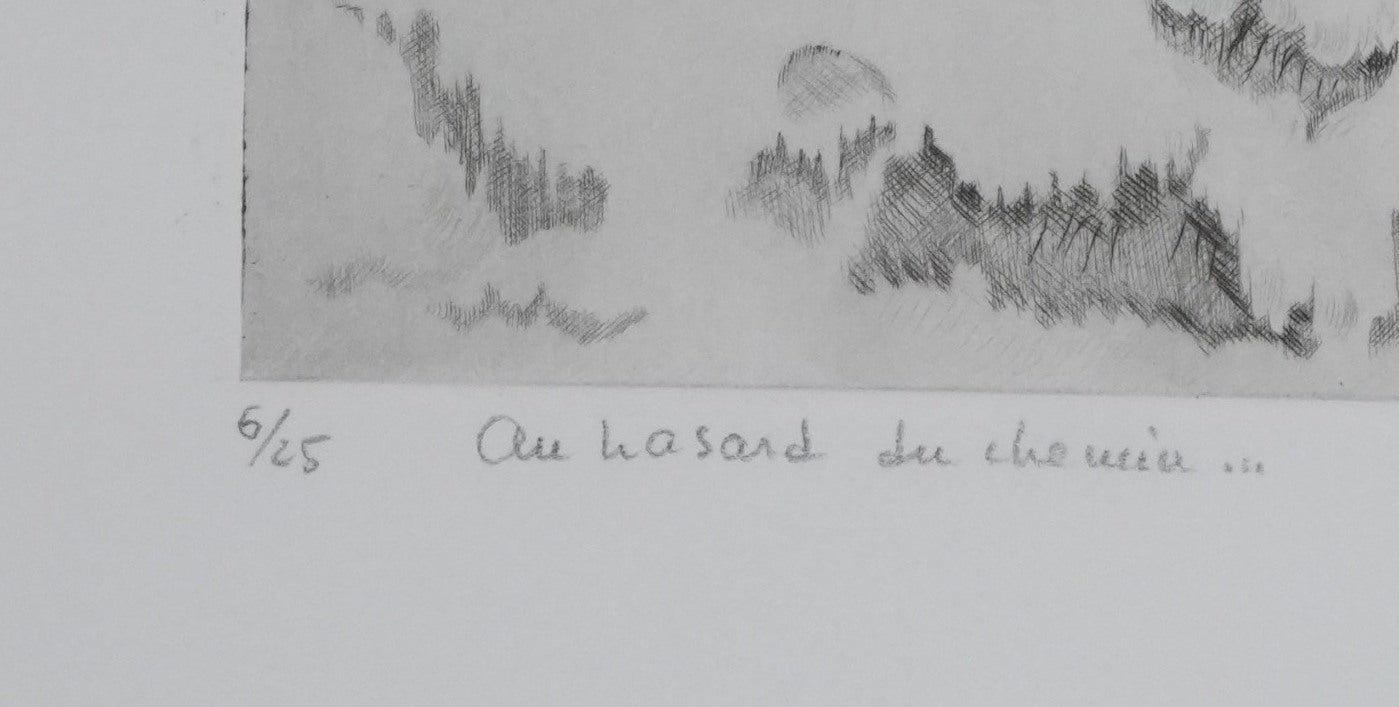 6/25 Au hasard du chemin ...